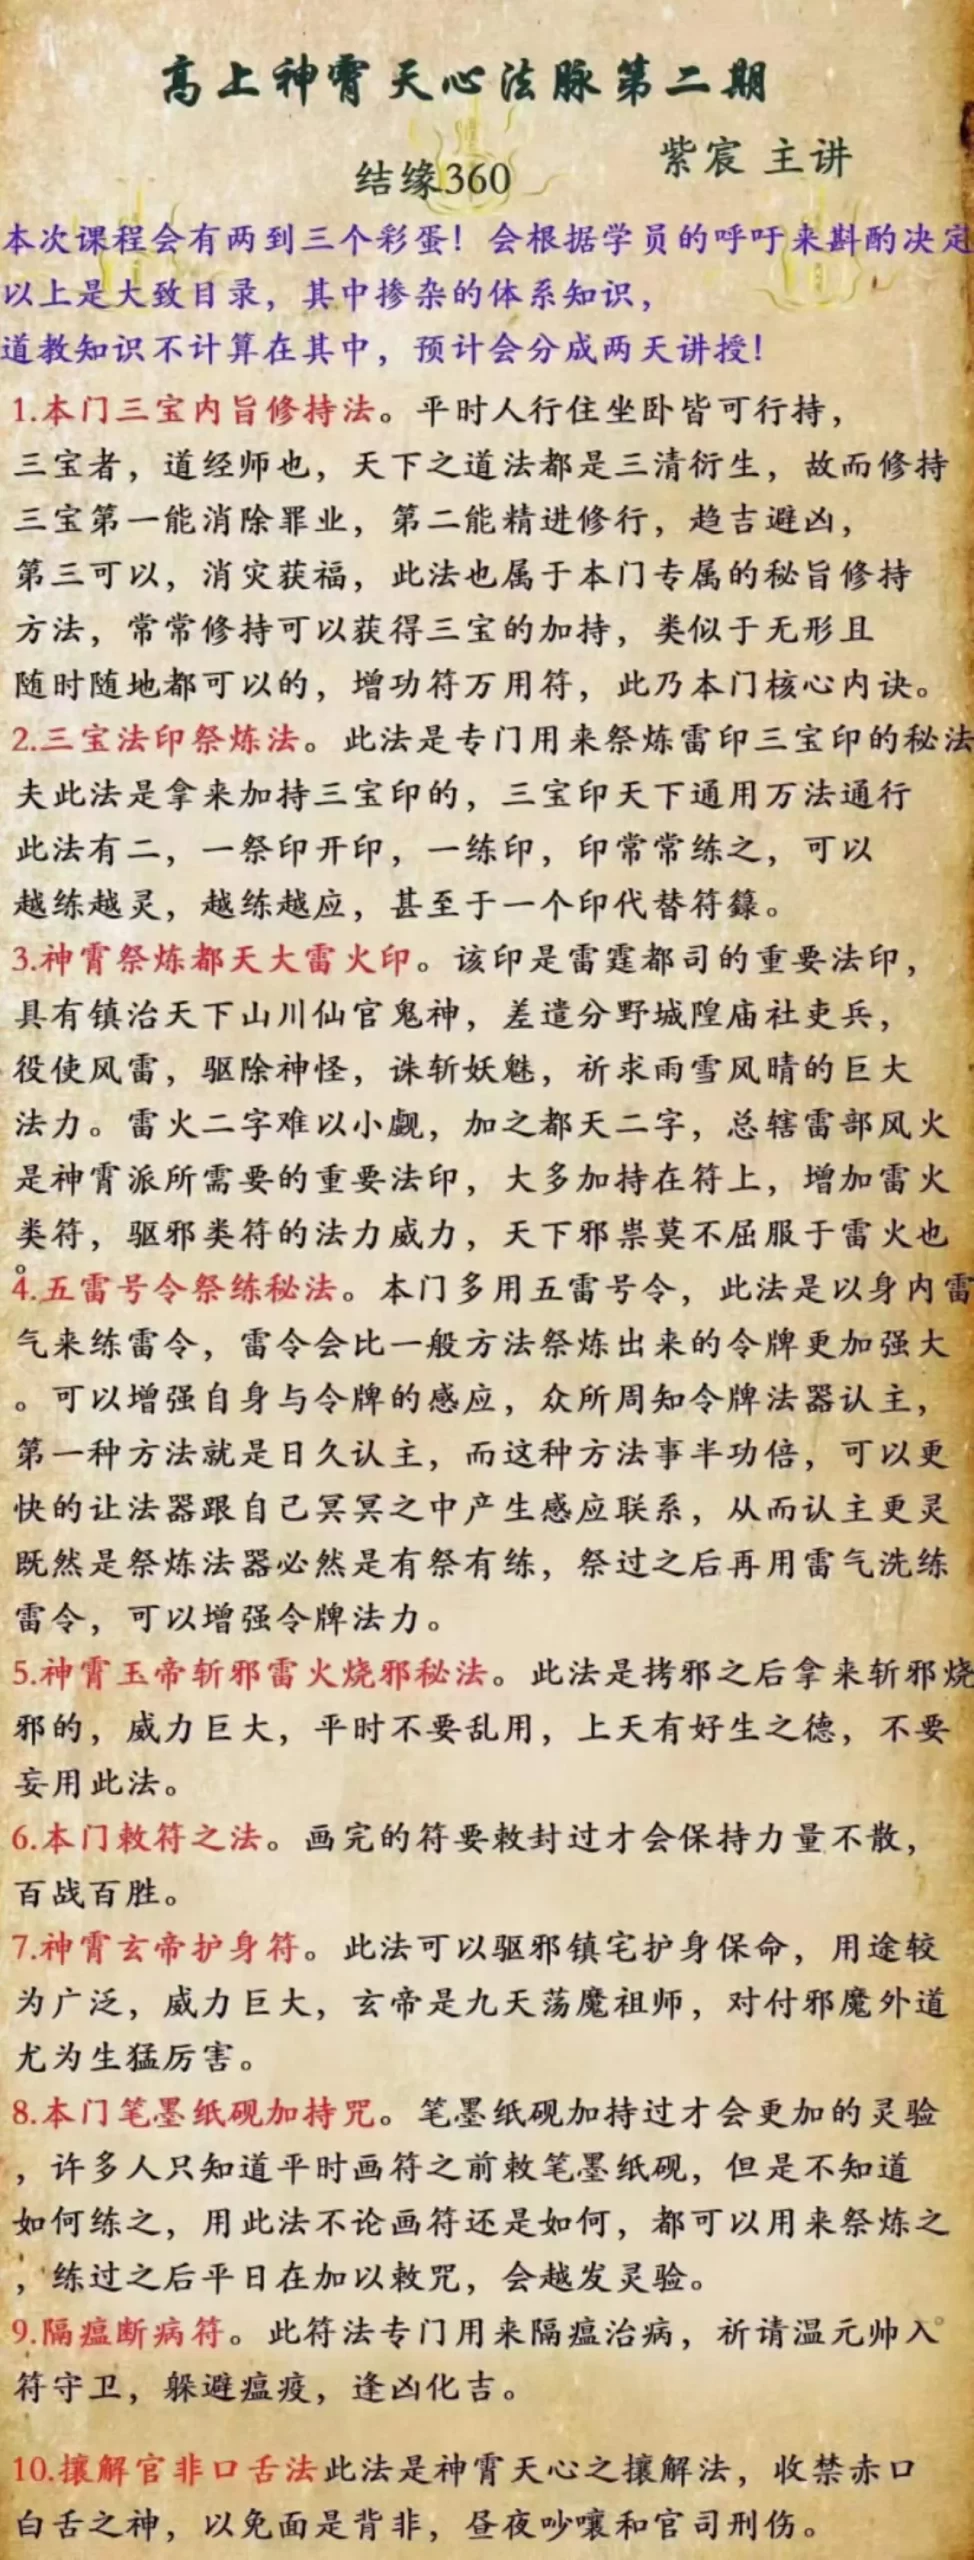 高上神霄天心法脉第二期
紫宸 主讲
结缘360
本次课程会有两到三个彩蛋！会根据学员的呼吁来斟酌决定
以上是大致目录，其中掺杂的体系知识，
道教知识不计算在其中，预计会分成两天讲授！
1.本门三宝内旨修持法。平时人行住坐卧皆可行持，
三宝者，道经师也，天下之道法都是三清衍生，故而修持
三宝第一能消除罪业，第二能精进修行，趋吉避凶，
第三可以，消灾获福，此法也属于本门专属的秘旨修持
方法，常常修持可以获得三宝的加持，类似于无形且
随时随地都可以的，增功符万用符，此乃本门核心内诀。
2.三宝法印祭炼法。此法是专门用来祭炼雷印三宝印的秘法
夫此法是拿来加持三宝印的，三宝印天下通用万法通行
此法有二，一祭印开印，一练印，印常常练之，可以
越练越灵，越练越应，甚至于一个印代替符籙。
3.神霄祭炼都天大雷火印。该印是雷霆都司的重要法印，
具有镇治天下山川仙官鬼神，差遣分野城隍庙社吏兵，
役使风雷，驱除神怪，诛斩妖魅，祈求雨雪风晴的巨大
法力。雷火二字难以小觑，加之都天二字，总辖雷部风火
是神霄派所需要的重要法印，大多加持在符上，增加雷火
类符，驱邪类符的法力威力，天下邪祟莫不屈服于雷火也
。
4.五雷号令祭练秘法。本门多用五雷号令，此法是以身内雷
气来练雷令，雷令会比一般方法祭炼出来的令牌更加强大
。可以增强自身与令牌的感应，众所周知令牌法器认主，
第一种方法就是日久认主，而这种方法事半功倍，可以更
快的让法器跟自己冥冥之中产生感应联系，从而认主更灵
既然是祭炼法器必然是有祭有练，祭过之后再用雷气洗练
雷令，可以增强令牌法力。
5.神霄玉帝斩邪雷火烧邪秘法。此法是拷邪之后拿来斩邪烧
邪的，威力巨大，平时不要乱用，上天有好生之德，不要
妄用此法。
6.本门敕符之法。画完的符要敕封过才会保持力量不散，
百战百胜。
7.神霄玄帝护身符。此法可以驱邪镇宅护身保命，用途较
为广泛，威力巨大，玄帝是九天荡魔祖师，对付邪魔外道
尤为生猛厉害。
8.本门笔墨纸砚加持咒。笔墨纸砚加持过才会更加的灵验
，许多人只知道平时画符之前敕笔墨纸砚，但是不知道
如何练之，用此法不论画符还是如何，都可以用来祭炼之
，练过之后平日在加以敕咒，会越发灵验。
9.隔瘟断病符。此符法专门用来隔瘟治病，祈请温元帅入
符守卫，躲避瘟疫，逢凶化吉。
10.攘解官非口舌法此法是神霄天心之攘解法，收禁赤口
白舌之神，以免面是背非，昼夜吵嚷和官司刑伤。